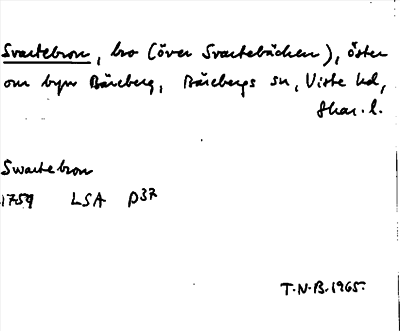 Svartebron, bro (över Svartebäcken), öster
om byn Bäreberg, Bärebergs sn, Viste hd,
Skar. l.
Swartebron
1759 LSA P37
T.N.B. 1965.